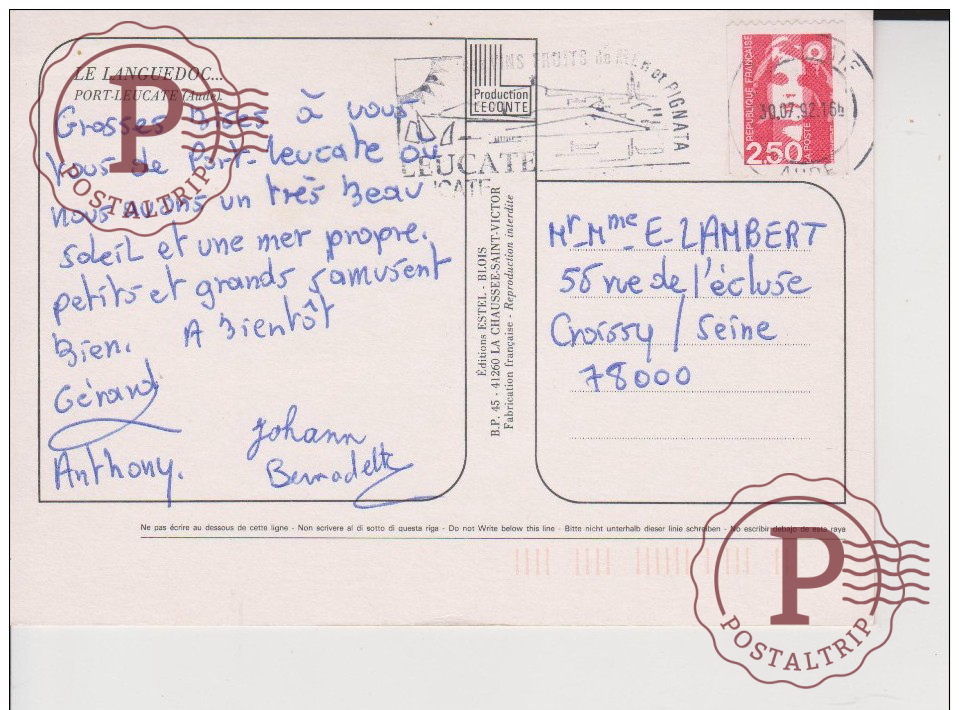 LE LANGUEDOC...
PORT-LEUCATE (Aude).
Grosses Bises à vous
tous de Port-Leucate où
nous avons un très beau
soleil et une mer propre.
petits et grands s'amusent
Bien. A Bientôt
Gérard
Anthony.
Johann
Bernadette
Production
LECONTE
LEUCATE
PIGNATA
Éditions ESTEL - BLOIS
B.P. 45 - 41260 LA CHAUSSEE-SAINT-VICTOR
Fabrication française - Reproduction interdite
REPUBLIQUE FRANÇAISE
2,50
LA POSTE
30.07.92.16h
AUDE
Mr_Mme E_LAMBERT
56 rue de l'écluse
Croissy / Seine
78000
Ne pas écrire au dessous de cette ligne - Non scrivere al di sotto di questa riga - Do not Write below this line - Bitte nicht unterhalb dieser linie schreiben - No escribir debajo de esta raya
P
POSTALTRIP
P
POSTALTRIP